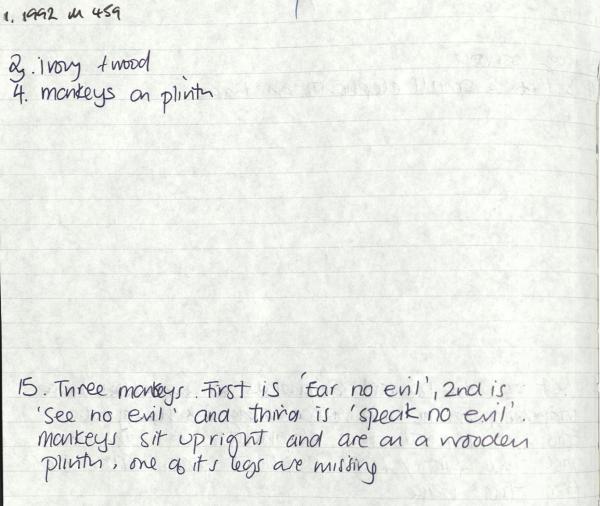 1. 1992 M 459
2. ivory + wood
4. monkeys on plinth
15. Three monkeys. First is 'Ear no evil', 2nd is
'See no evil' and third is 'speak no evil'.
monkeys sit upright and are on a wooden
plinth, one of its legs are missing